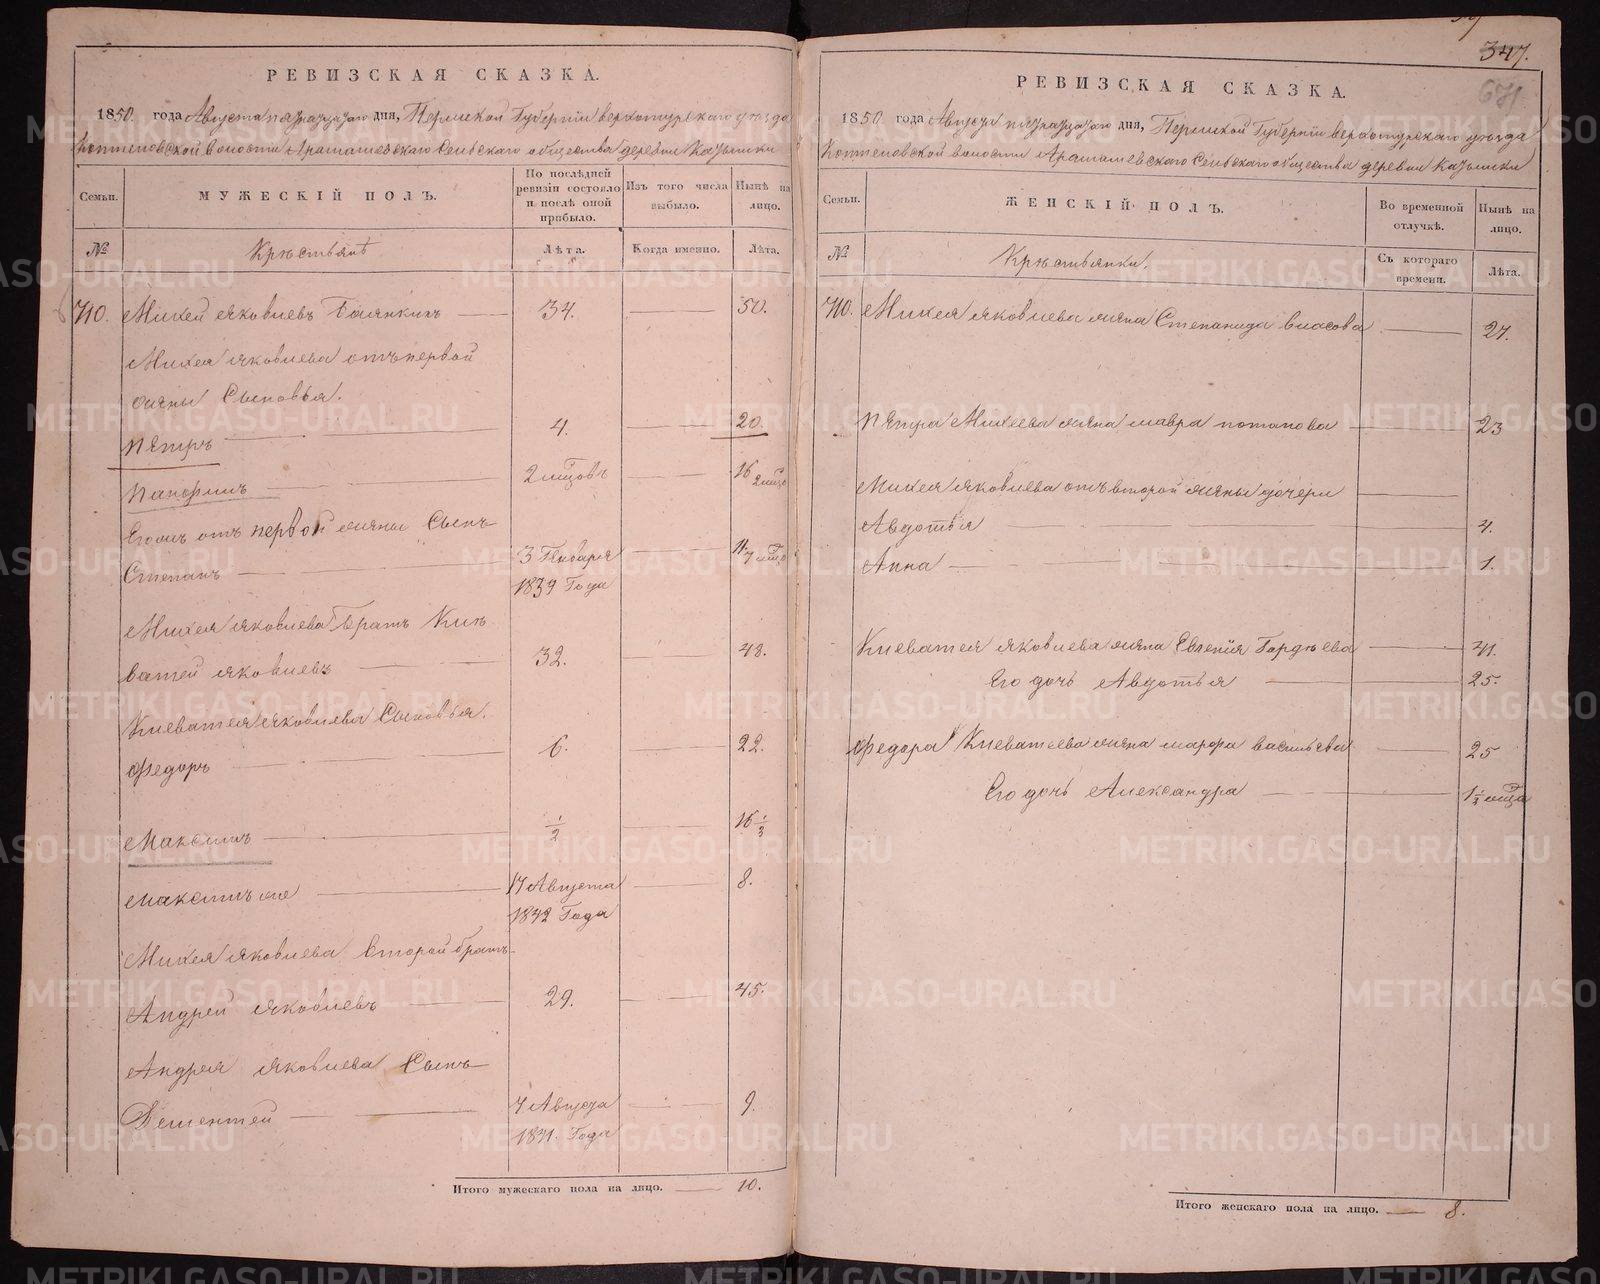 РЕВИЗСКАЯ СКАЗКА.
1850 года Августа дня, Пермской Губерніи верхотурскаго уезда
Коптеловской волости Арамашевскаго Сельскаго общества деревни
Семьи.
МУЖЕСКІЙ ПОЛЪ.
По послѣдней ревизіи состояло и послѣ оной прибыло.
Изъ того числа выбыло.
Нынѣ на лицо.
№
Крестьяне
Лѣта.
Когда именно.
Лѣта.
710. Михей Яковлевъ 34. 50.
Михея Яковлева отъ первой
жены Сыновья.
Петръ 4. 20.
16
Его жъ отъ первой жены Сынъ
Степанъ 3 Января 11
1839 Года
Михея Яковлева Братъ
Яковлевъ 32. 48.
Яковлева Сыновья.
Федоръ 6. 22.
Максимъ 1/2 16 1/2
Максимъ же 17 Августа 8.
1842 Года
Михея Яковлева второй братъ
Андрей Яковлевъ 29. 45.
Андрея Яковлева Сынъ
Дементей 7 Августа 9.
1841. Года
Итого мужескаго пола на лицо. 10.
347.
671
РЕВИЗСКАЯ СКАЗКА.
1850 года Августа дня, Пермской Губерніи верхотурскаго уезда
Коптеловской волости Арамашевскаго Сельскаго общества деревни
Семьи.
ЖЕНСКІЙ ПОЛЪ.
Во временной отлучкѣ.
Нынѣ на лицо.
№
Крестьянки.
Съ котораго времени.
Лѣта.
710. Михея Яковлева жена Степанида власова 27.
Петра Михеева жена мавра потапова 23
Михея Яковлева отъ второй жены дочери
Авдотья 4.
Анна 1.
Яковлева жена Евгения Гордеева 41.
Его дочь Авдотья 25.
Федора жена марфа васильева 25
Его дочь Александра
Итого женскаго пола на лицо. 8.
METRIKI.GASO-URAL.RU